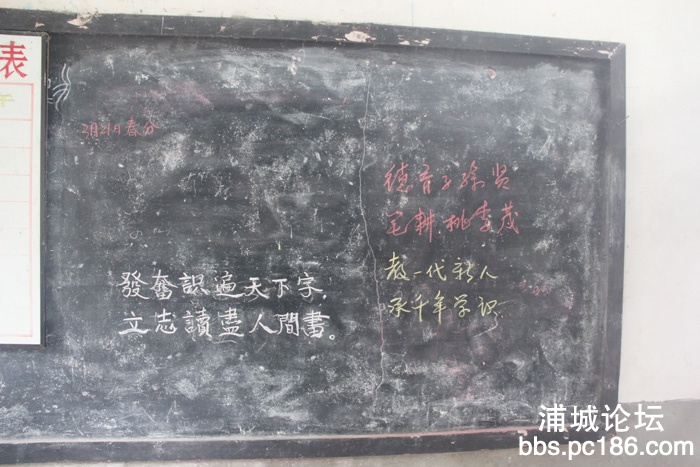 表
3月21日春分
德育子孙贤
笔耕桃李茂
教一代新人
承千年学识
發奮識遍天下字,
立志讀盡人間書。
浦城论坛
bbs.pc186.com